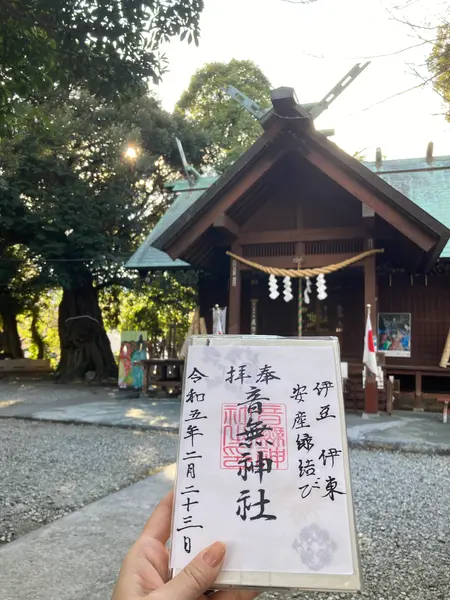 伊豆 伊東
安産縁結び
奉拝
音無神社
令和五年二月二十三日